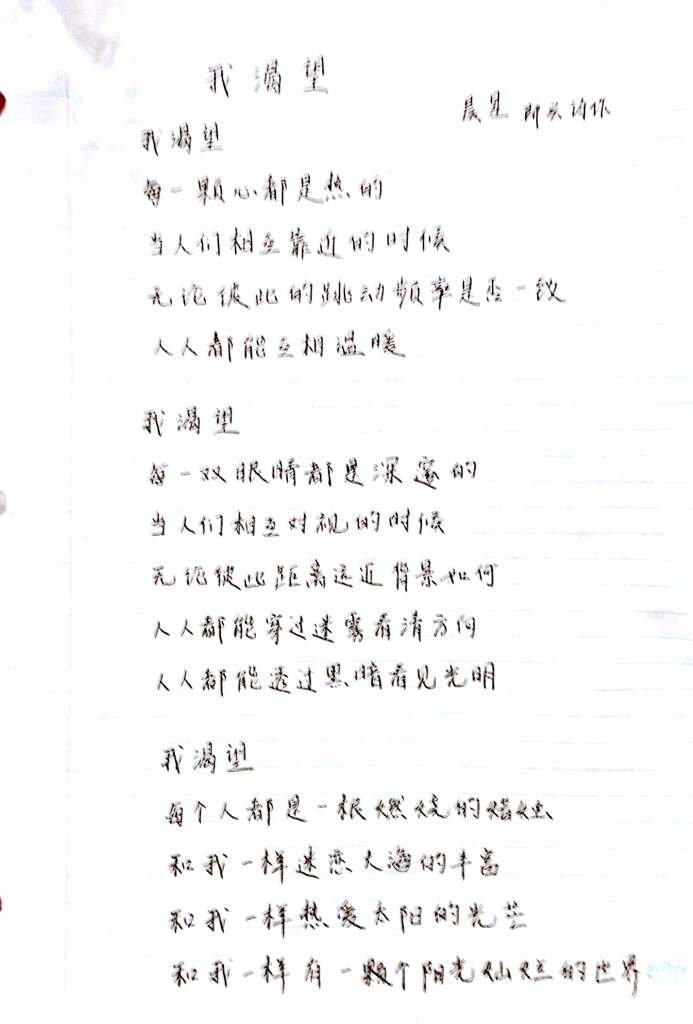 我渴望
晨星 即兴诗作
我渴望
每一颗心都是热的
当人们相互靠近的时候
无论彼此的跳动频率是否一致
人人都能互相温暖
我渴望
每一双眼睛都是深邃的
当人们相互对视的时候
无论彼此距离远近背景如何
人人都能穿过迷雾看清方向
人人都能透过黑暗看见光明
我渴望
每个人都是一根燃烧的蜡烛
和我一样迷恋大海的丰富
和我一样热爱太阳的光芒
和我一样有一颗个阳光灿烂的世界